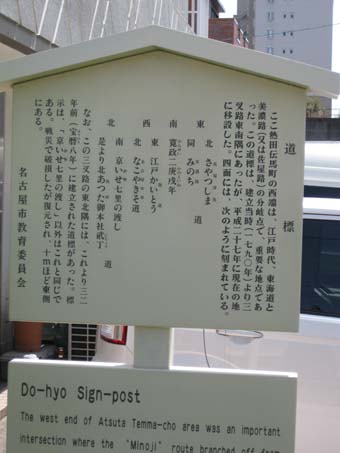 道標
ここ熱田伝馬町の西端は、江戸時代、東海道と
美濃路(又は佐屋路)の分岐点で、重要な地点であ
った。この道標は、建立当時(一七九〇年)より三
叉路東南隅にあったが、平成二十七年に現在の地
に移設した。四面には、次のように刻まれている。
東 北 さやつしま
同 みのち 道
南 寛政二庚戌年
西 東 江戸かいとう
北 なこやきそ 道
北 南 京いせ七里の渡し
是より北あつた御本社貮丁 道
なお、この三叉路の東北隅には、これより三二
年前(宝暦八年)に建立された道標があった。標
示は、「京いせ七里の渡し」以外はこれと同じで
ある。戦災で破損したが復元され、十mほど東側
にある。
名古屋市教育委員会
Do-hyo Sign-post
The west end of Atsuta Temma-cho area was an important
intersection where the "Minoji" route branched off from